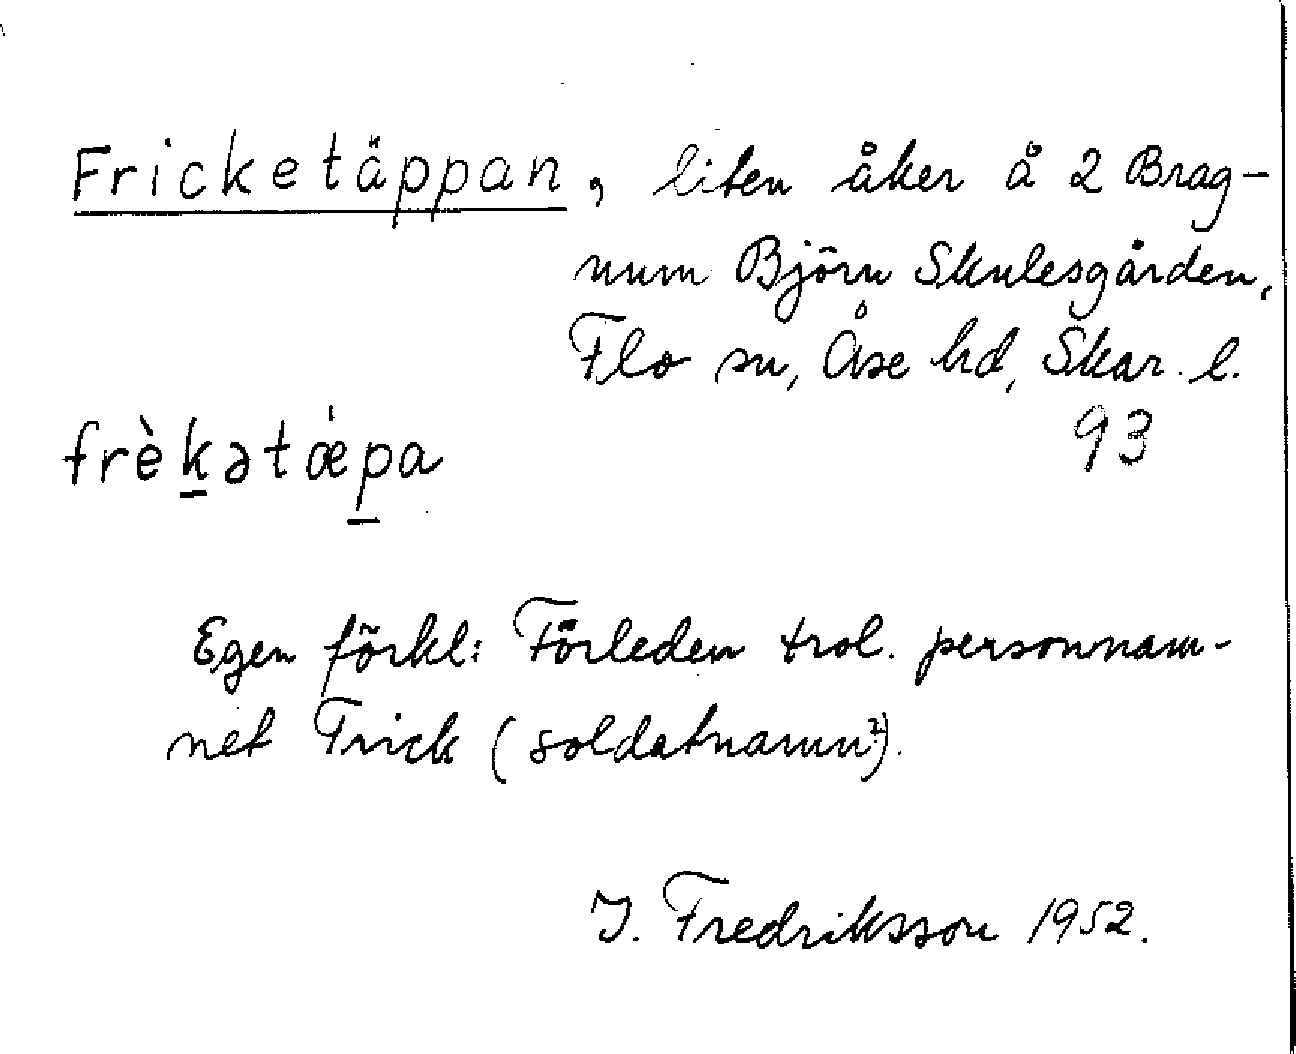 Fricketäppan, liten åker å 2 Brag-
num Björn Skulesgården,
Flo sn, Åse hd, Skar. l.
93
frèkətǽpa
Egen förkl: Förleden trol. personnam-
net Frick (soldatnamn?).
I. Fredriksson 1952.